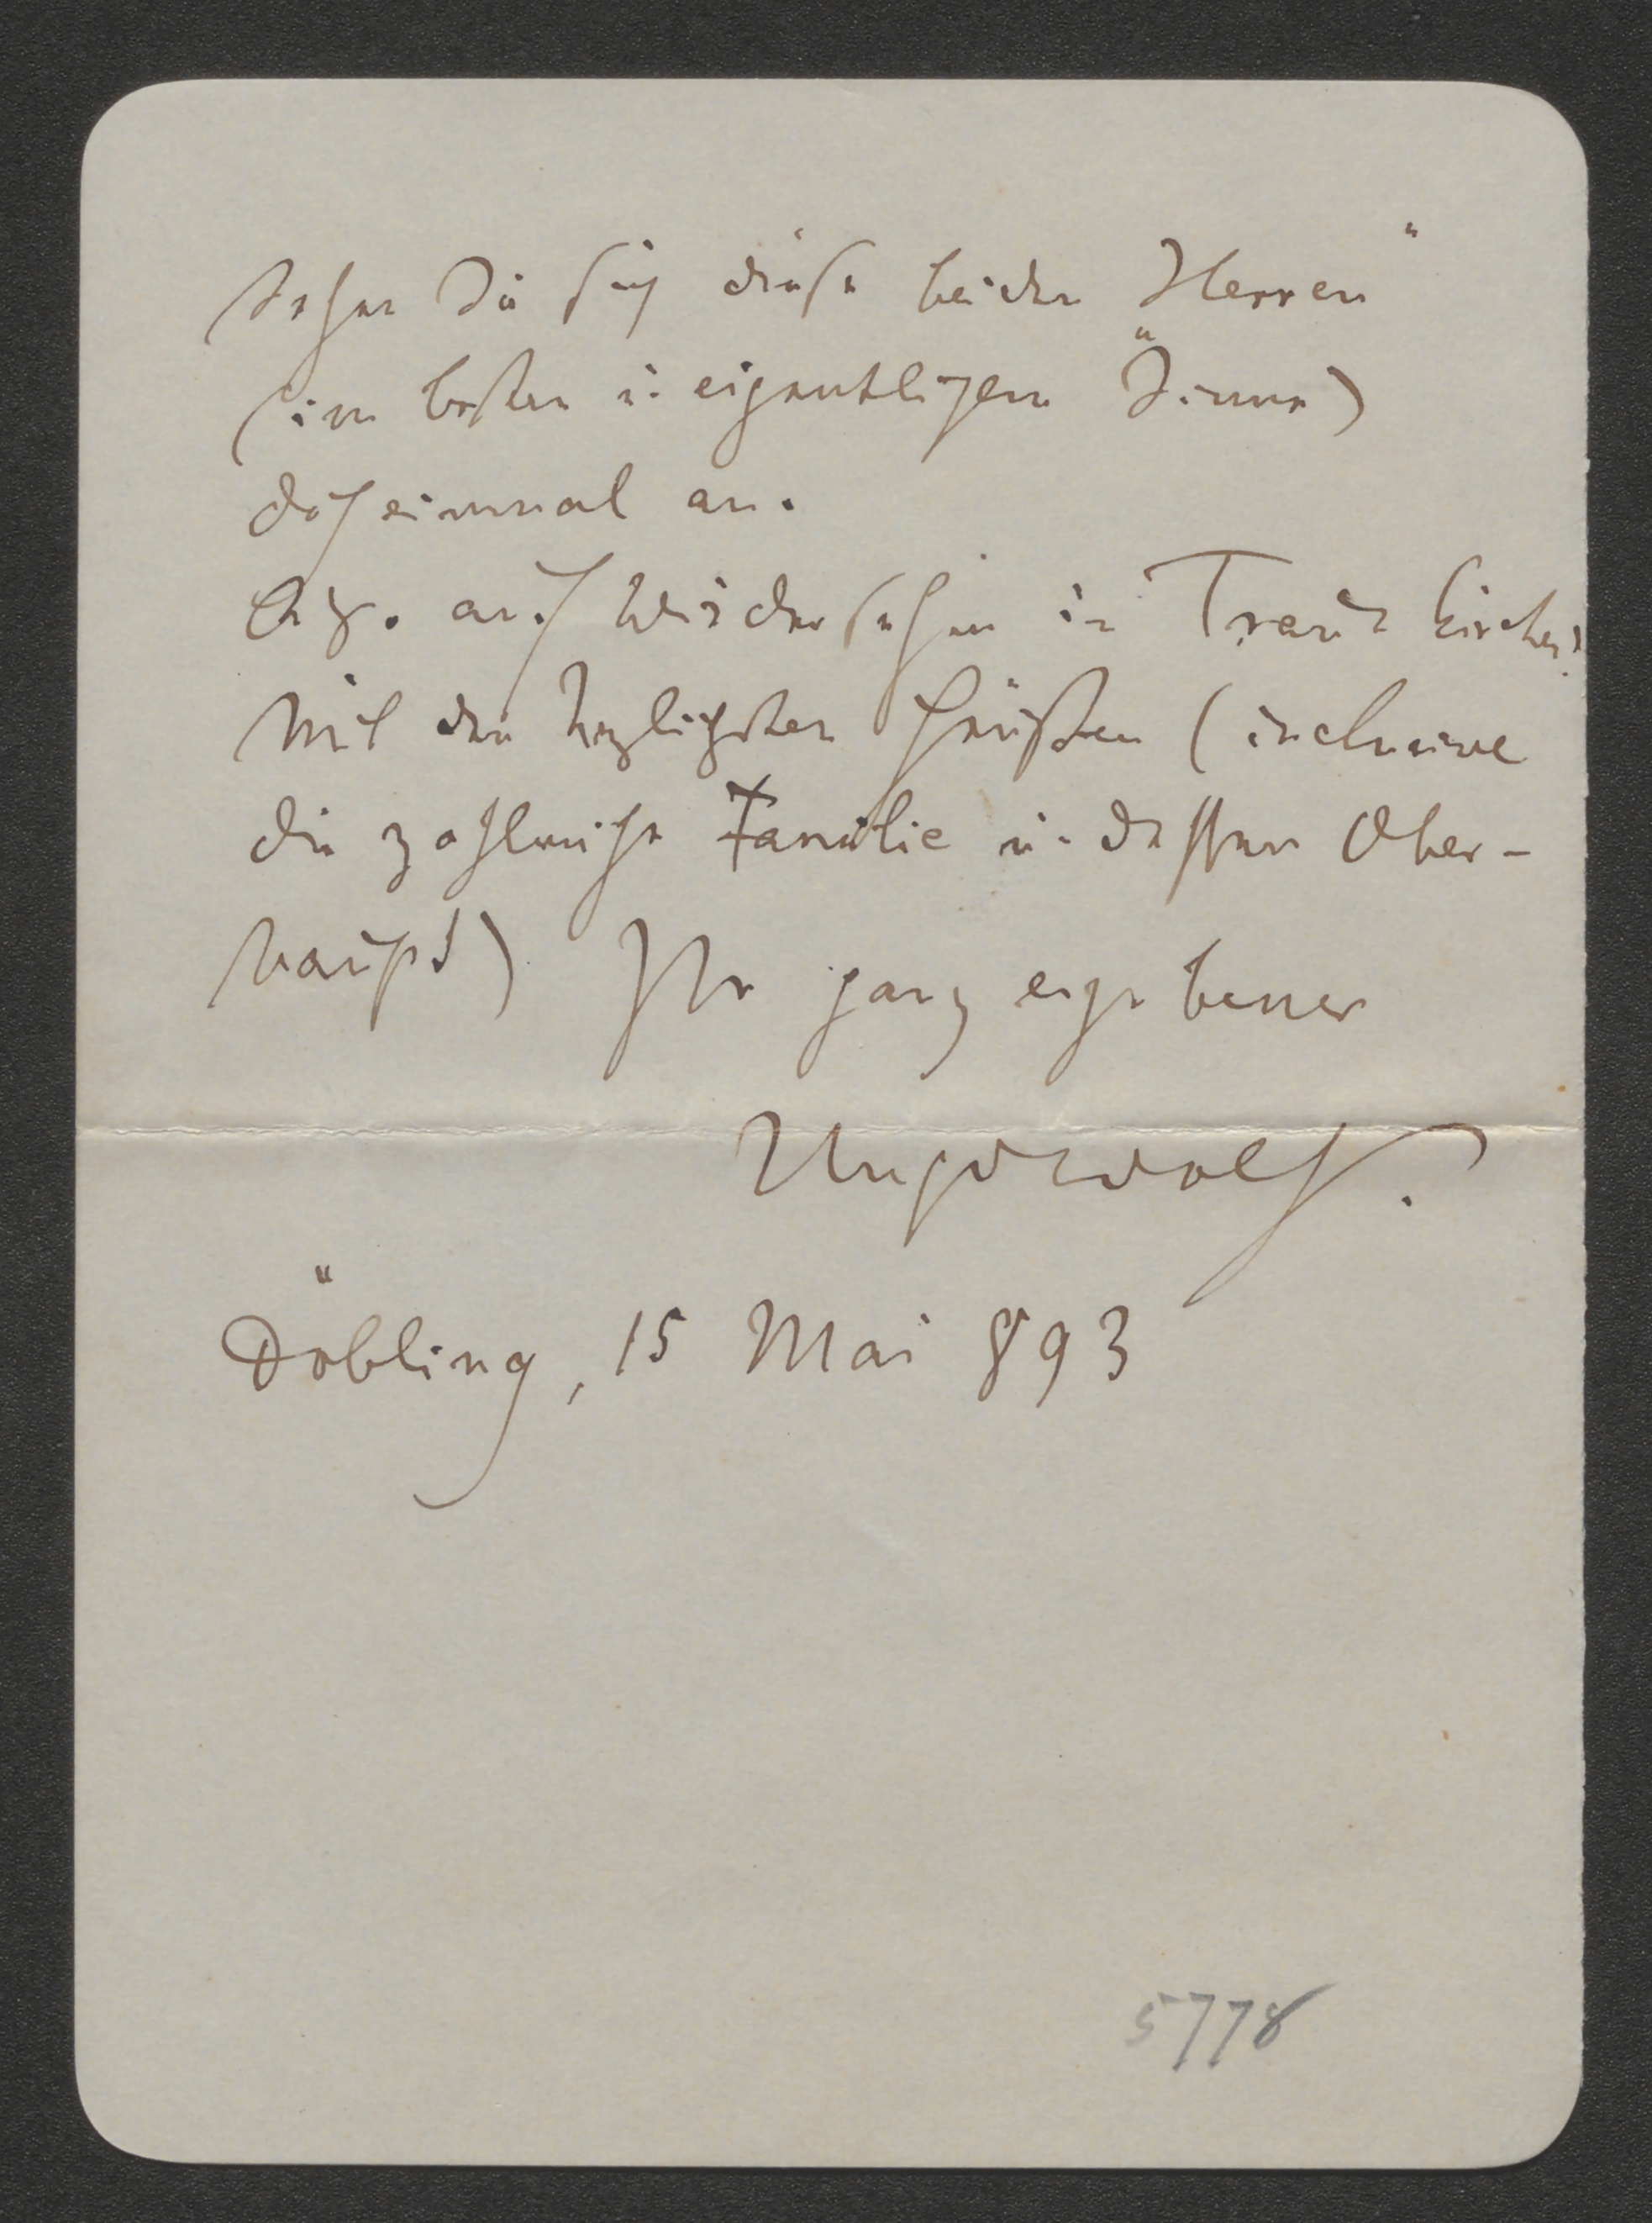 Sehen Sie sich diese beiden „Herren“
(im besten u. eigentlichen Sinne)
doch einmal an.
Also. auf Wiedersehen in Traunkirchen!
Mit den herzlichsten Grüßen (inclusive
die zahlreiche Familie u. dessen Ober-
haupt) Ihr ganz ergebener
Hugo Wolf.
Döbling, 15 Mai 893
5778